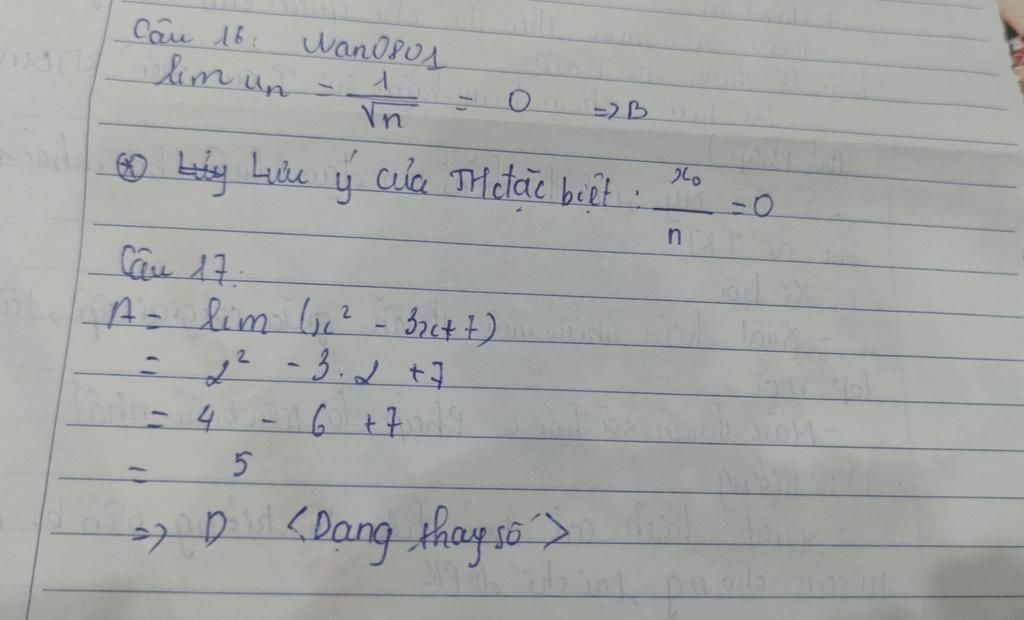 Câu 16: Nan0801
lim un = 1/√n = 0 => B
⊛ Lưu ý của TH đặc biệt: x₀/n = 0
Câu 17:
A = lim (x² - 3x + 7)
= 2² - 3.2 + 7
= 4 - 6 + 7
= 5
=> D <Dạng thay số>